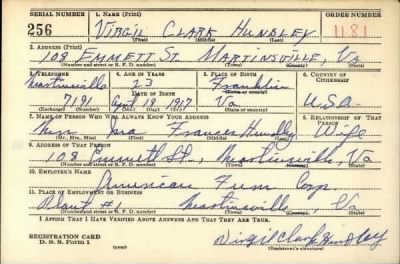 SERIAL NUMBER 1. NAME (Print) ORDER NUMBER
256 VIRGIL CLARK HUNDLEY 1181
(First) (Middle) (Last)
2. ADDRESS (Print)
108 EMMETT ST. MARTINSVILLE, VA
(Number and street or R. F. D. number) (Town) (County) (State)
3. TELEPHONE 4. AGE IN YEARS 5. PLACE OF BIRTH 6. COUNTRY OF CITIZENSHIP
Martinsville 23 Franklin
(Exchange) DATE OF BIRTH (Town or county)
7191 April 18 1917 Va U.S.A.
(Number) (Mo.) (Day) (Yr.) (State or country)
7. NAME OF PERSON WHO WILL ALWAYS KNOW YOUR ADDRESS 8. RELATIONSHIP OF THAT PERSON
Frances Hundley Wife
(Mr., Mrs., Miss) (First) (Middle) (Last)
9. ADDRESS OF THAT PERSON
108 Emmett St., Martinsville, Va
(Number and street or R. F. D. number) (Town) (County) (State)
10. EMPLOYER'S NAME
American Furn Corp
11. PLACE OF EMPLOYMENT OR BUSINESS
Plant #1 Martinsville, Va
(Number and street or R. F. D. number) (Town) (County) (State)
I AFFIRM THAT I HAVE VERIFIED ABOVE ANSWERS AND THAT THEY ARE TRUE.
REGISTRATION CARD
D. S. S. Form 1 (over) Virgil Clark Hundley
(Registrant's signature)